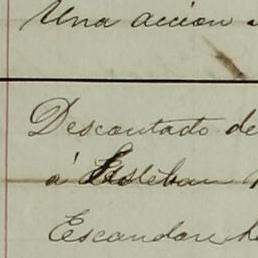 Una accion
Descontado de
á Esteban
Escandon